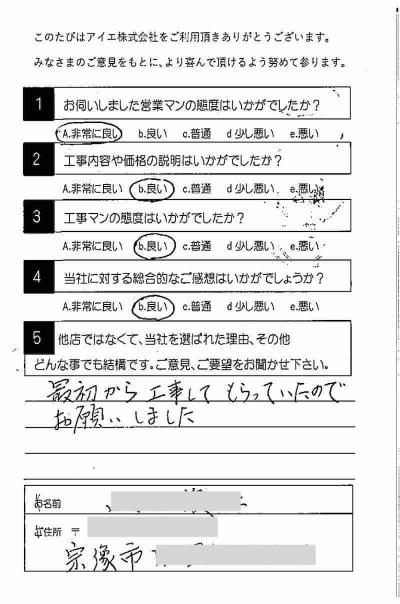 このたびはアイエ株式会社をご利用頂きありがとうございます。
みなさまのご意見をもとに、より喜んで頂けるよう努めて参ります。
1 お伺いしました営業マンの態度はいかがでしたか?
A.非常に良い b.良い c.普通 d 少し悪い e.悪い
2 工事内容や価格の説明はいかがでしたか?
A.非常に良い b.良い c.普通 d 少し悪い e.悪い
3 工事マンの態度はいかがでしたか?
A.非常に良い b.良い c.普通 d 少し悪い e.悪い
4 当社に対する総合的なご感想はいかがでしょうか?
A.非常に良い b.良い c.普通 d 少し悪い e.悪い
5 他店ではなくて、当社を選ばれた理由、その他
どんな事でも結構です。ご意見、ご要望をお聞かせ下さい。
最初から工事してもらっていたので
お願いしました
お名前
ご住所 〒
宗像市